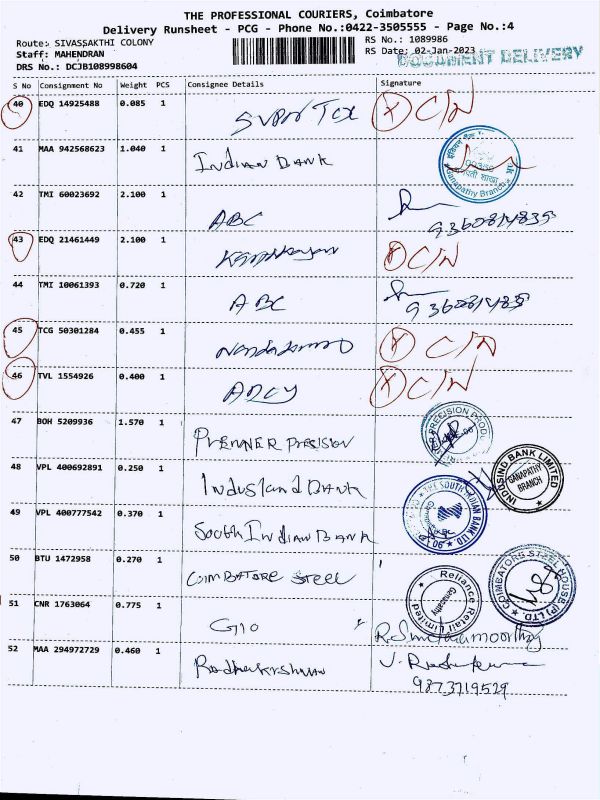 THE PROFESSIONAL COURIERS, Coimbatore
Delivery Runsheet - PCG - Phone No.:0422-3505555 - Page No.:4
Route: SIVASSAKTHI COLONY
Staff: MAHENDRAN
DRS No.: DCJB108998604
RS No.: 1089986
RS Date: 02-Jan-2023
DOCUMENT DELIVERY
S No Consignment No Weight PCS Consignee Details Signature
40 EDQ 14925488 0.085 1 X C/N
41 MAA 942568623 1.040 1 INDIAN BANK
Ganapathy Branch
42 TMI 60023692 2.100 1 ABC
43 EDQ 21461449 2.100 1 X C/N
44 TMI 10061393 0.720 1 ABC
45 TCG 50301284 0.455 1 X C/N
46 TVL 1554926 0.400 1 X C/N
47 BOH 5209936 1.570 1 PREMIER PRECISION
48 VPL 400692891 0.250 1 IndusInd BANK
INDUSIND BANK LIMITED
GANAPATHY BRANCH
49 VPL 400777542 0.370 1 South INdIAN BANK
THE SOUTH INDIAN BANK LTD
50 BTU 1472958 0.270 1 COIMBATORE STEEL
COIMBATORE STEEL HOUSE (P) LTD
51 CNR 1763064 0.775 1 GIO
Reliance Retail Limited
Ganapathy
52 MAA 294972729 0.460 1 Radhakrishnan
9873719529